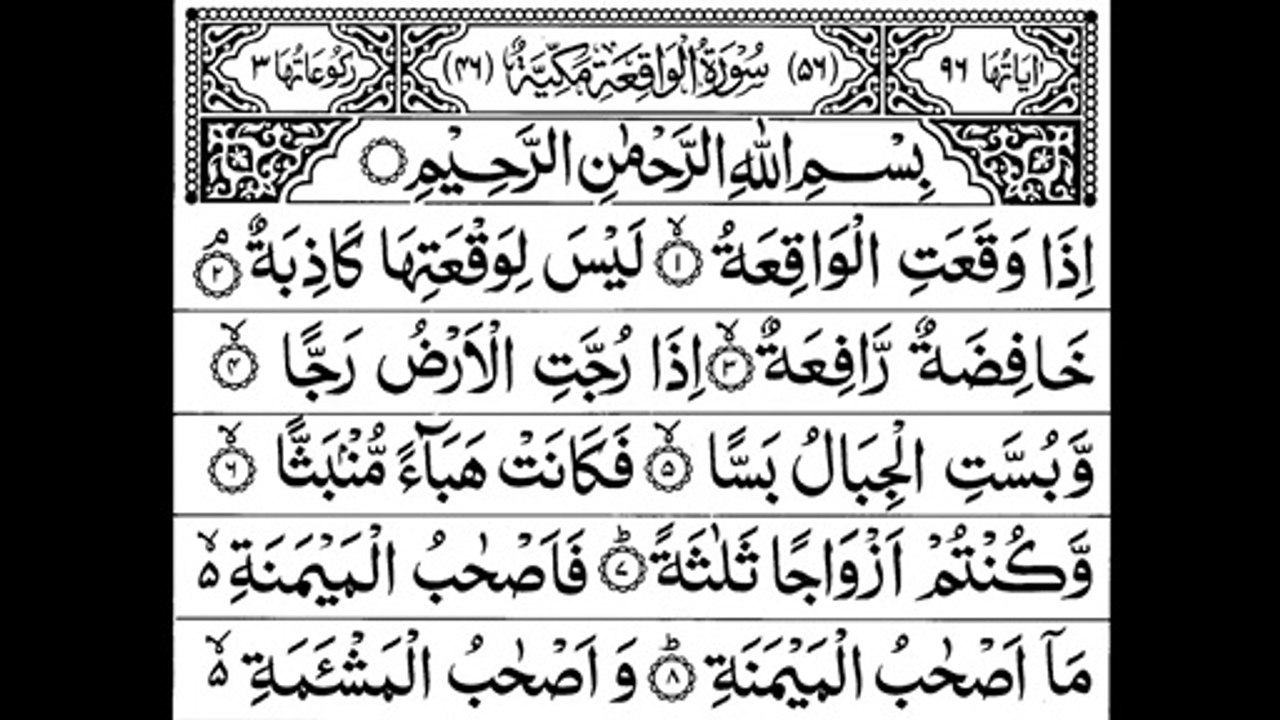 اٰيَاتُهَا ٩٦ (٥٦) سُوْرَةُ الْوَاقِعَةِ مَكِّيَّةٌ (٤٦) رُكُوْعَاتُهَا ٣
بِسْمِ اللّٰهِ الرَّحْمٰنِ الرَّحِيْمِ
اِذَا وَقَعَتِ الْوَاقِعَةُ ۙ‏﴿۱﴾ لَيْسَ لِوَقْعَتِهَا كَاذِبَةٌ ۘ‏﴿۲﴾
خَافِضَةٌ رَّافِعَةٌ ۙ‏﴿۳﴾ اِذَا رُجَّتِ الْاَرْضُ رَجًّا ۙ‏﴿۴﴾
وَّبُسَّتِ الْجِبَالُ بَسًّا ۙ‏﴿۵﴾ فَكَانَتْ هَبَآءً مُّنْۢبَثًّا ۙ‏﴿۶﴾
وَّكُنْتُمْ اَزْوَاجًا ثَلٰثَةً ؕ‏﴿۷﴾ فَاَصْحٰبُ الْمَيْمَنَةِ ۙ۵
مَاۤ اَصْحٰبُ الْمَيْمَنَةِ ؕ‏﴿۸﴾ وَ اَصْحٰبُ الْمَشْئَمَةِ ۙ۵